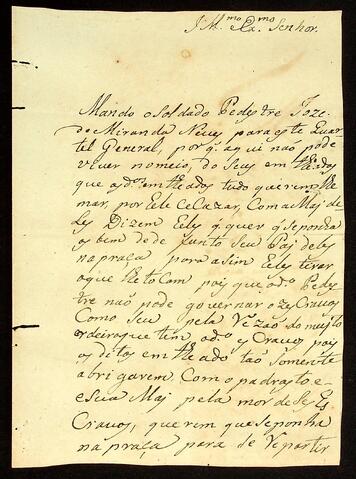 Illmo e Exmo Senhor.
Mando o Soldado Pedestre Joze
de Miranda Neves para este Quar
tel General, por q. aqui não pode
viver no meio, do Seus emteados
que os do emteados tudo querem to
mar, por Ele Ce Cazar, Com a Maj de
Les Dizem Eles q. quer q. Seponda
os bens de de funto Seu Paj deles
na praça para asim Eles tirar
oque lhe to Cam pois que o do Pedes
tre não pode governar o zes Cravos
Como Seu pela Vezão do muito
que tem o do es Cravos pois
os ditos em teado tão Somente
abrigarem. Com o padrasto e
e Sua Maj pela mor de Se Es
Cravos, que rem que Se ponha
na praça para de Repartir